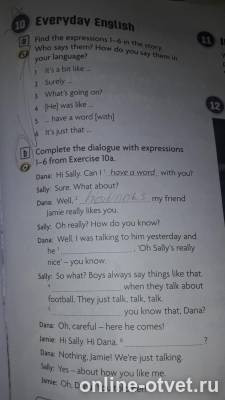 10 Everyday English
a Find the expressions 1–6 in the story.
Who says them? How do you say them in
your language?
1 It's a bit like ...
2 Surely ...
3 What's going on?
4 [He] was like ...
5 ... have a word [with]
6 It's just that ...
b Complete the dialogue with expressions
1–6 from Exercise 10a.
Dana: Hi Sally. Can I ¹ have a word with you?
Sally: Sure. What about?
Dana: Well, ² my friend
Jamie really likes you.
Sally: Oh really? How do you know?
Dana: Well I was talking to him yesterday and
he ³ ____________. 'Oh Sally's really
nice' – you know.
Sally: So what? Boys always say things like that.
⁴ ____________ when they talk about
football. They just talk, talk, talk.
⁵ ____________ you know that, Dana?
Dana: Oh, careful – here he comes!
Jamie: Hi Sally. Hi Dana. ⁶ ____________ ?
Dana: Nothing, Jamie! We're just talking.
Sally: Yes – about how you like me.
Jamie: Oh, D
11
12
online-otvet.ru